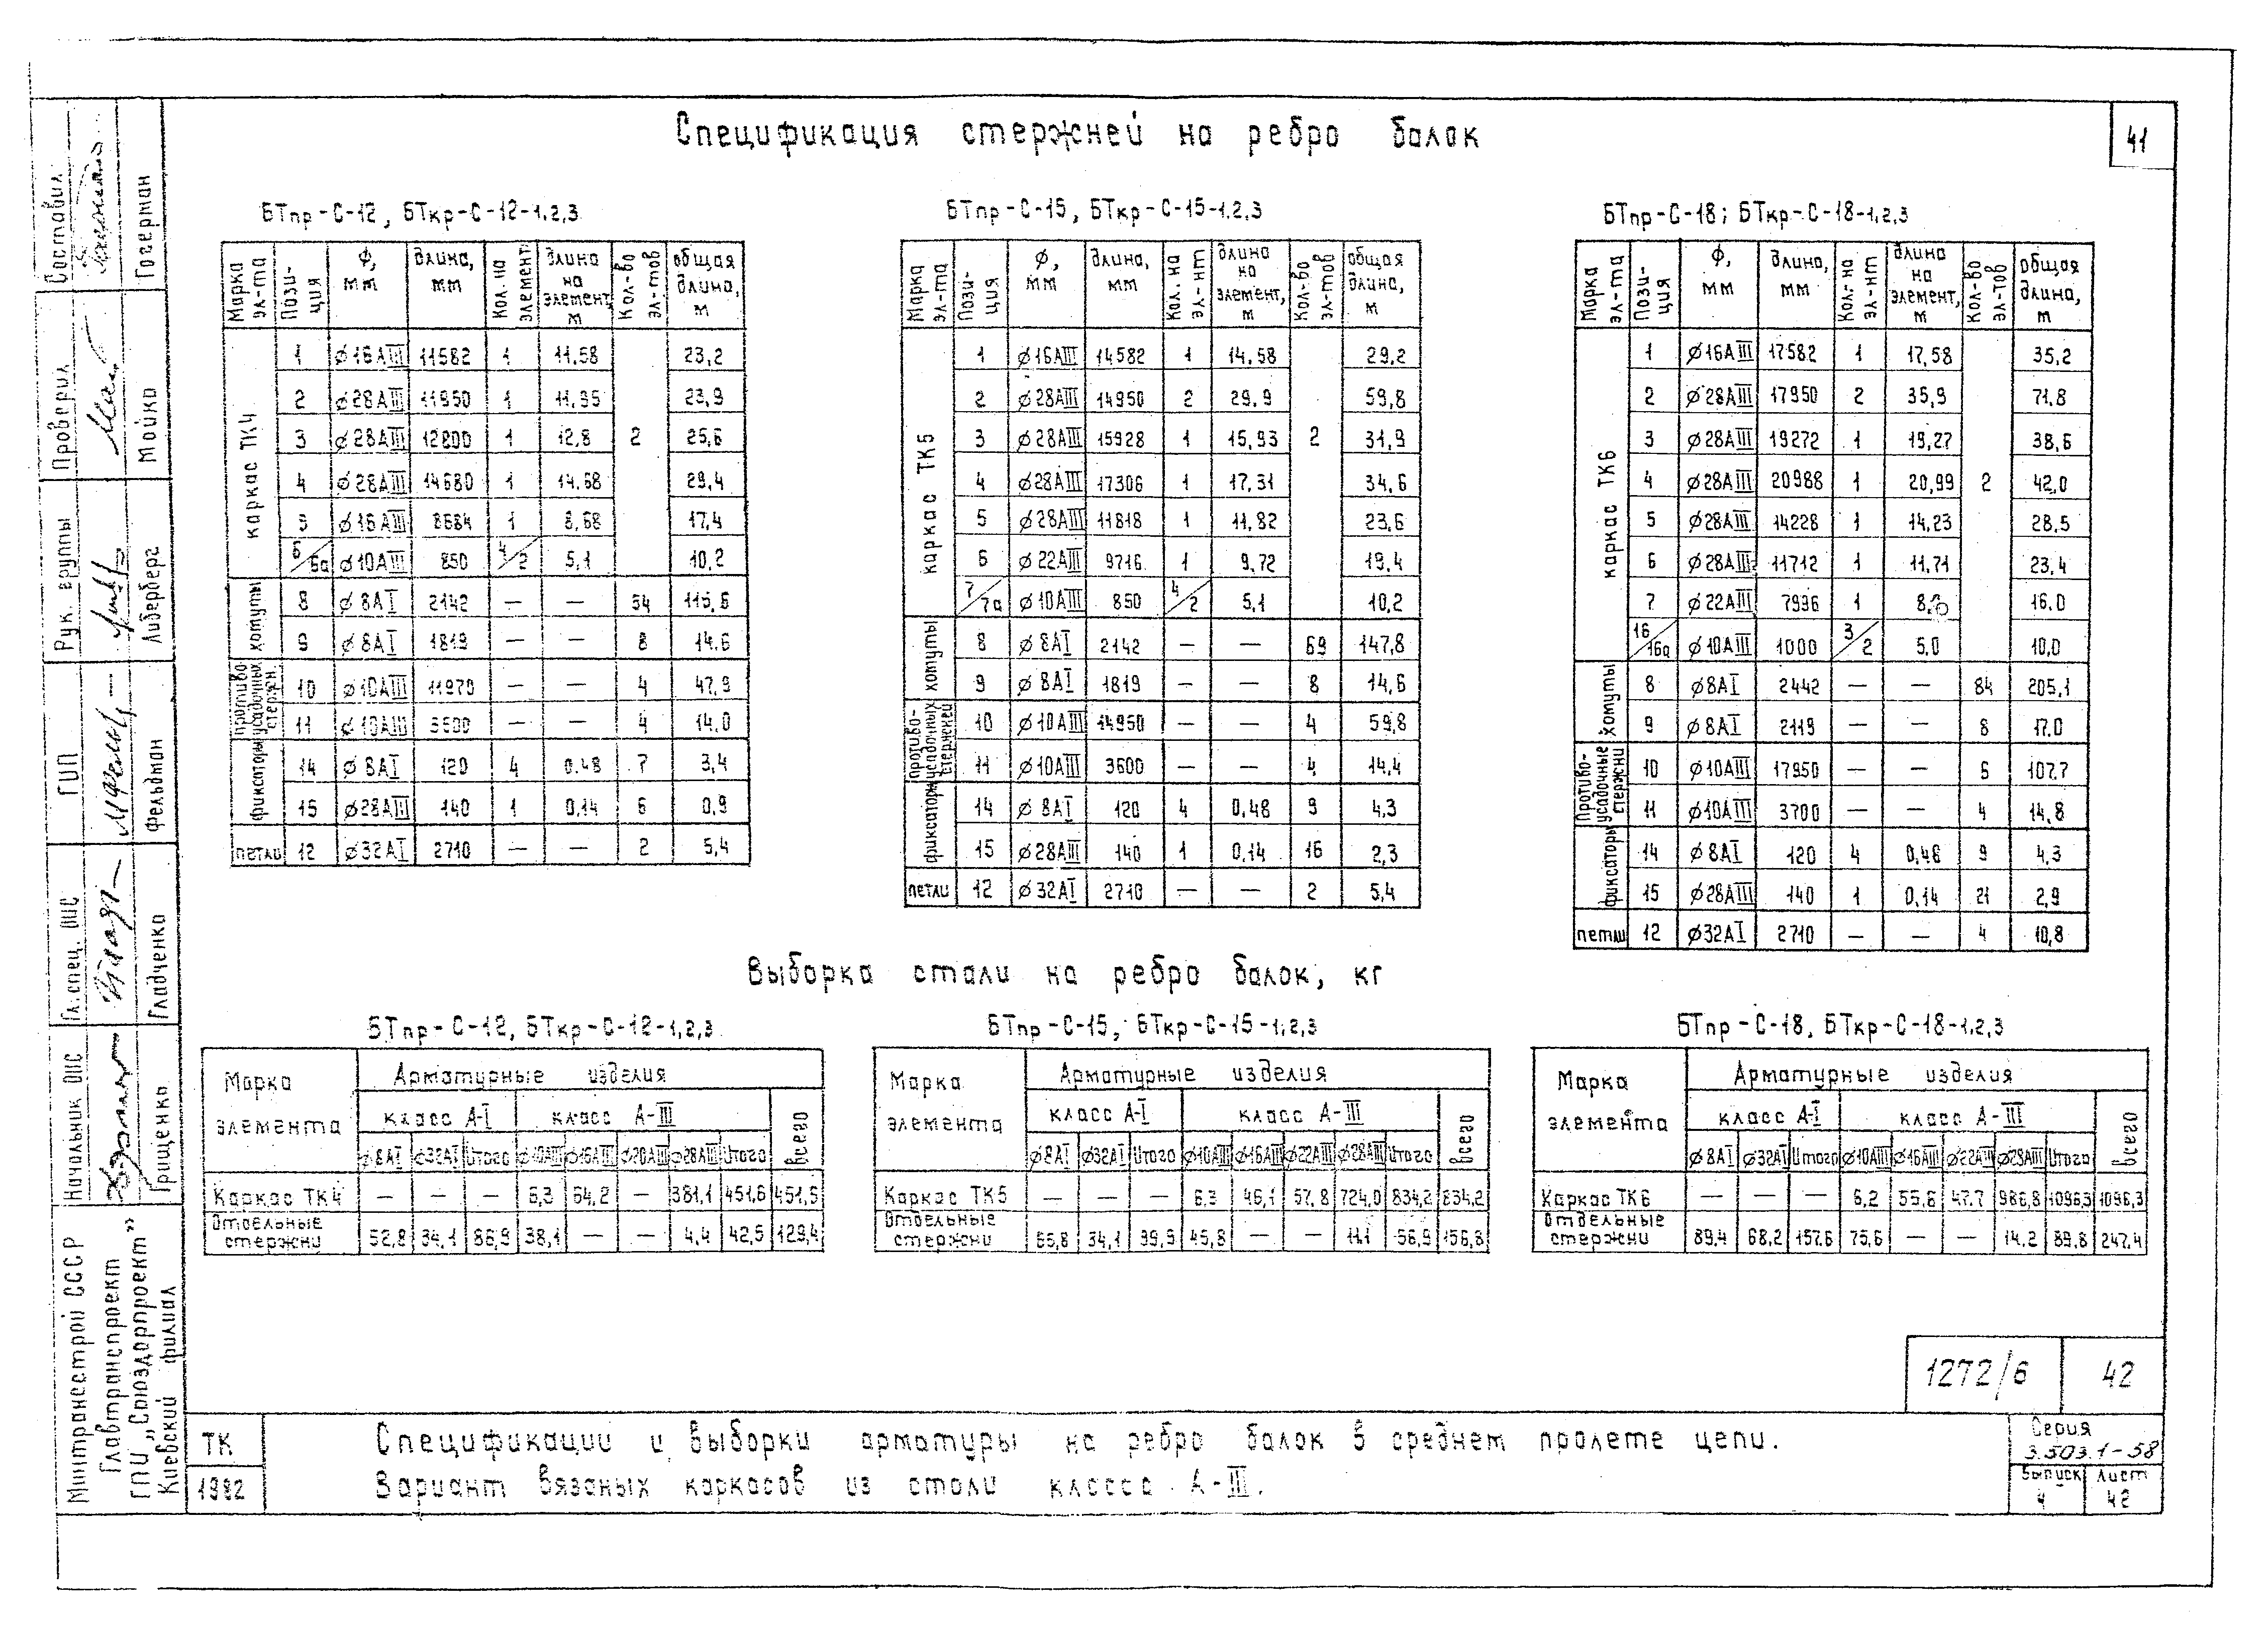 Спецификация стержней на ребро балок
41
БТпр-С-12, БТкр-С-12-1,2,3
Марка эл-та | Пози-ция | Ф, мм | Длина, мм | Кол. на элемент | Длина на элемент, м | Кол-во эл-тов | Общая длина, м
каркас ТК4
1 | ∅16АIII | 11582 | 1 | 11.58 | 2 | 23,2
2 | ∅28АIII | 11950 | 1 | 11.95 | 23,9
3 | ∅28АIII | 12800 | 1 | 12.8 | 25,6
4 | ∅28АIII | 14680 | 1 | 14.68 | 29,4
5 | ∅16АIII | 8684 | 1 | 8,68 | 17,4
6/6а | ∅10АIII | 850 | 4/2 | 5,1 | 10,2
хомуты
8 | ∅8АI | 2142 | — | — | 54 | 115,6
9 | ∅8АI | 1819 | — | — | 8 | 14.6
противо-усадочных стержн.
10 | ∅10АIII | 11970 | — | — | 4 | 47,9
11 | ∅10АIII | 3500 | — | — | 4 | 14,0
фиксаторы
14 | ∅8АI | 120 | 4 | 0.48 | 7 | 3,4
15 | ∅28АIII | 140 | 1 | 0,14 | 6 | 0,9
петли | 12 | ∅32АI | 2710 | — | — | 2 | 5,4
БТпр-С-15, БТкр-С-15-1,2,3
Марка эл-та | Пози-ция | Ф, мм | Длина, мм | Кол. на эл-нт | Длина на элемент, м | Кол-во эл-тов | Общая длина, м
каркас ТК5
1 | ∅16АIII | 14582 | 1 | 14,58 | 2 | 29,2
2 | ∅28АIII | 14950 | 2 | 29,9 | 59,8
3 | ∅28АIII | 15928 | 1 | 15,93 | 31,9
4 | ∅28АIII | 17306 | 1 | 17,31 | 34,6
5 | ∅28АIII | 11818 | 1 | 11,82 | 23,6
6 | ∅22АIII | 9716 | 1 | 9,72 | 19,4
7/7а | ∅10АIII | 850 | 4/2 | 5,1 | 10,2
хомуты
8 | ∅8АI | 2142 | — | — | 69 | 147,8
9 | ∅8АI | 1819 | — | — | 8 | 14,6
противо-усадочных стержней
10 | ∅10АIII | 14950 | — | — | 4 | 59,8
11 | ∅10АIII | 3600 | — | — | 4 | 14,4
фиксаторы
14 | ∅8АI | 120 | 4 | 0,48 | 9 | 4,3
15 | ∅28АIII | 140 | 1 | 0,14 | 16 | 2,3
петли | 12 | ∅32АI | 2710 | — | — | 2 | 5,4
БТпр-С-18; БТкр-С-18-1,2,3
Марка эл-та | Пози-ция | Ф, мм | Длина, мм | Кол-на эл-нт | Длина на элемент, м | Кол-во эл-тов | Общая длина, м
каркас ТК6
1 | ∅16АIII | 17582 | 1 | 17,58 | 2 | 35,2
2 | ∅28АIII | 17950 | 2 | 35,9 | 71,8
3 | ∅28АIII | 19272 | 1 | 19,27 | 38,6
4 | ∅28АIII | 20988 | 1 | 20,99 | 42,0
5 | ∅28АIII | 14228 | 1 | 14,23 | 28,5
6 | ∅28АIII | 11712 | 1 | 11,71 | 23,4
7 | ∅22АIII | 7996 | 1 | 8,0 | 16.0
16/16а | ∅10АIII | 1000 | 3/2 | 5,0 | 10,0
хомуты
8 | ∅8АI | 2442 | — | — | 84 | 205,1
9 | ∅8АI | 2119 | — | — | 8 | 17.0
Противо-усадочные стержни
10 | ∅10АIII | 17950 | — | — | 6 | 107,7
11 | ∅10АIII | 3700 | — | — | 4 | 14,8
фиксаторы
14 | ∅8АI | 120 | 4 | 0,48 | 9 | 4,3
15 | ∅28АIII | 140 | 1 | 0,14 | 21 | 2,9
петли | 12 | ∅32АI | 2710 | — | — | 4 | 10,8
Выборка стали на ребро балок, кг
БТпр-С-12, БТкр-С-12-1,2,3
Марка элемента | Арматурные изделия
класс А-I | класс А-III | Всего
∅8АI | ∅32АI | Итого | ∅10АIII | ∅16АIII | ∅20АIII | ∅28АIII | Итого
Каркас ТК4 | — | — | — | 6,3 | 64,2 | — | 381,1 | 451,6 | 451,6
Отдельные стержни | 52,8 | 34,1 | 86,9 | 38,1 | — | — | 4,4 | 42,5 | 129,4
БТпр-С-15, БТкр-С-15-1,2,3
Марка элемента | Арматурные изделия
класс А-I | класс А-III | Всего
∅8АI | ∅32АI | Итого | ∅10АIII | ∅16АIII | ∅22АIII | ∅28АIII | Итого
Каркас ТК5 | — | — | — | 6.3 | 46,1 | 57,8 | 724,0 | 834,2 | 834,2
Отдельные стержни | 65,8 | 34,1 | 99,9 | 45,8 | — | — | 11.1 | 56,9 | 156,8
БТпр-С-18, БТкр-С-18-1,2,3
Марка элемента | Арматурные изделия
класс А-I | класс А-III | Всего
∅8АI | ∅32АI | Итого | ∅10АIII | ∅16АIII | ∅22АIII | ∅28АIII | Итого
Каркас ТК6 | — | — | — | 6,2 | 55,6 | 47.7 | 986,8 | 1096,3 | 1096,3
Отдельные стержни | 89,4 | 68,2 | 157,6 | 75,6 | — | — | 14.2 | 89,8 | 247,4
1272/6 | 42
ТК
1982
Спецификации и выборки арматуры на ребро балок в среднем пролете цепи.
Вариант вязаных каркасов из стали класса А-III.
Серия
3.503.1-58
Выпуск | Лист
4 | 42
Составил | Гогерман
Проверил | Мойко
Рук. группы | Либерберг
ГИП | Фельдман
Гл. спец. ОИС | Гладченко
Начальник ОИС | Грищенко
Минтрансстрой СССР
Главтранспроект
ГПИ „Союздорпроект”
Киевский филиал